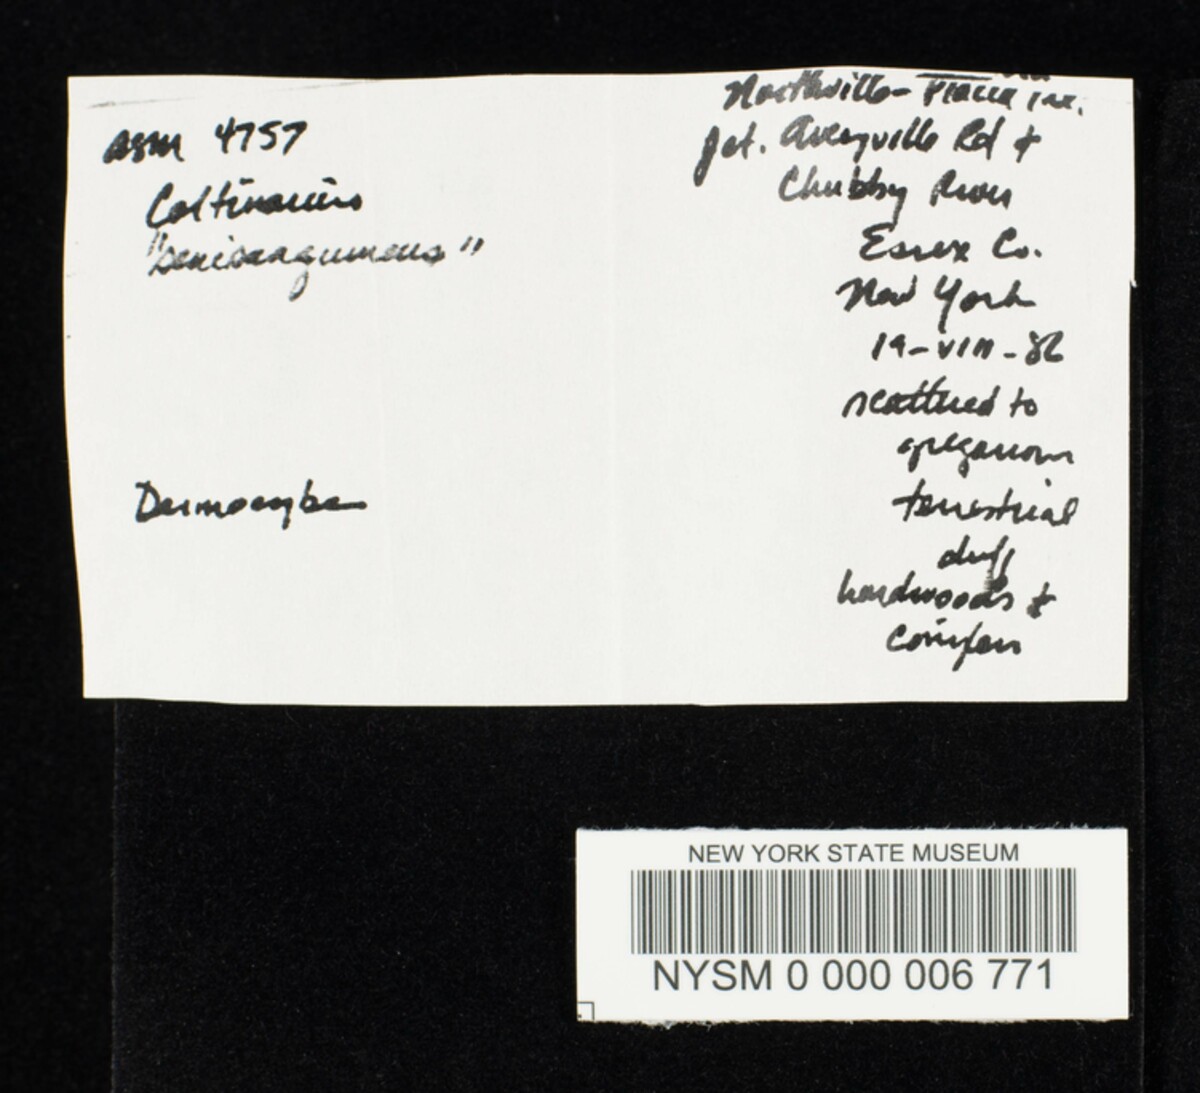 asm 4757
Cortinarius
"semisanguineus"
Dermocybe
Northville - Placid Trl.
Jct. Averyville Rd &
Chubby River
Essex Co.
New York
19-VIII-86
scattered to
gregarious
terrestrial
duff
hardwoods &
conifers
NEW YORK STATE MUSEUM
NYSM 0 000 006 771